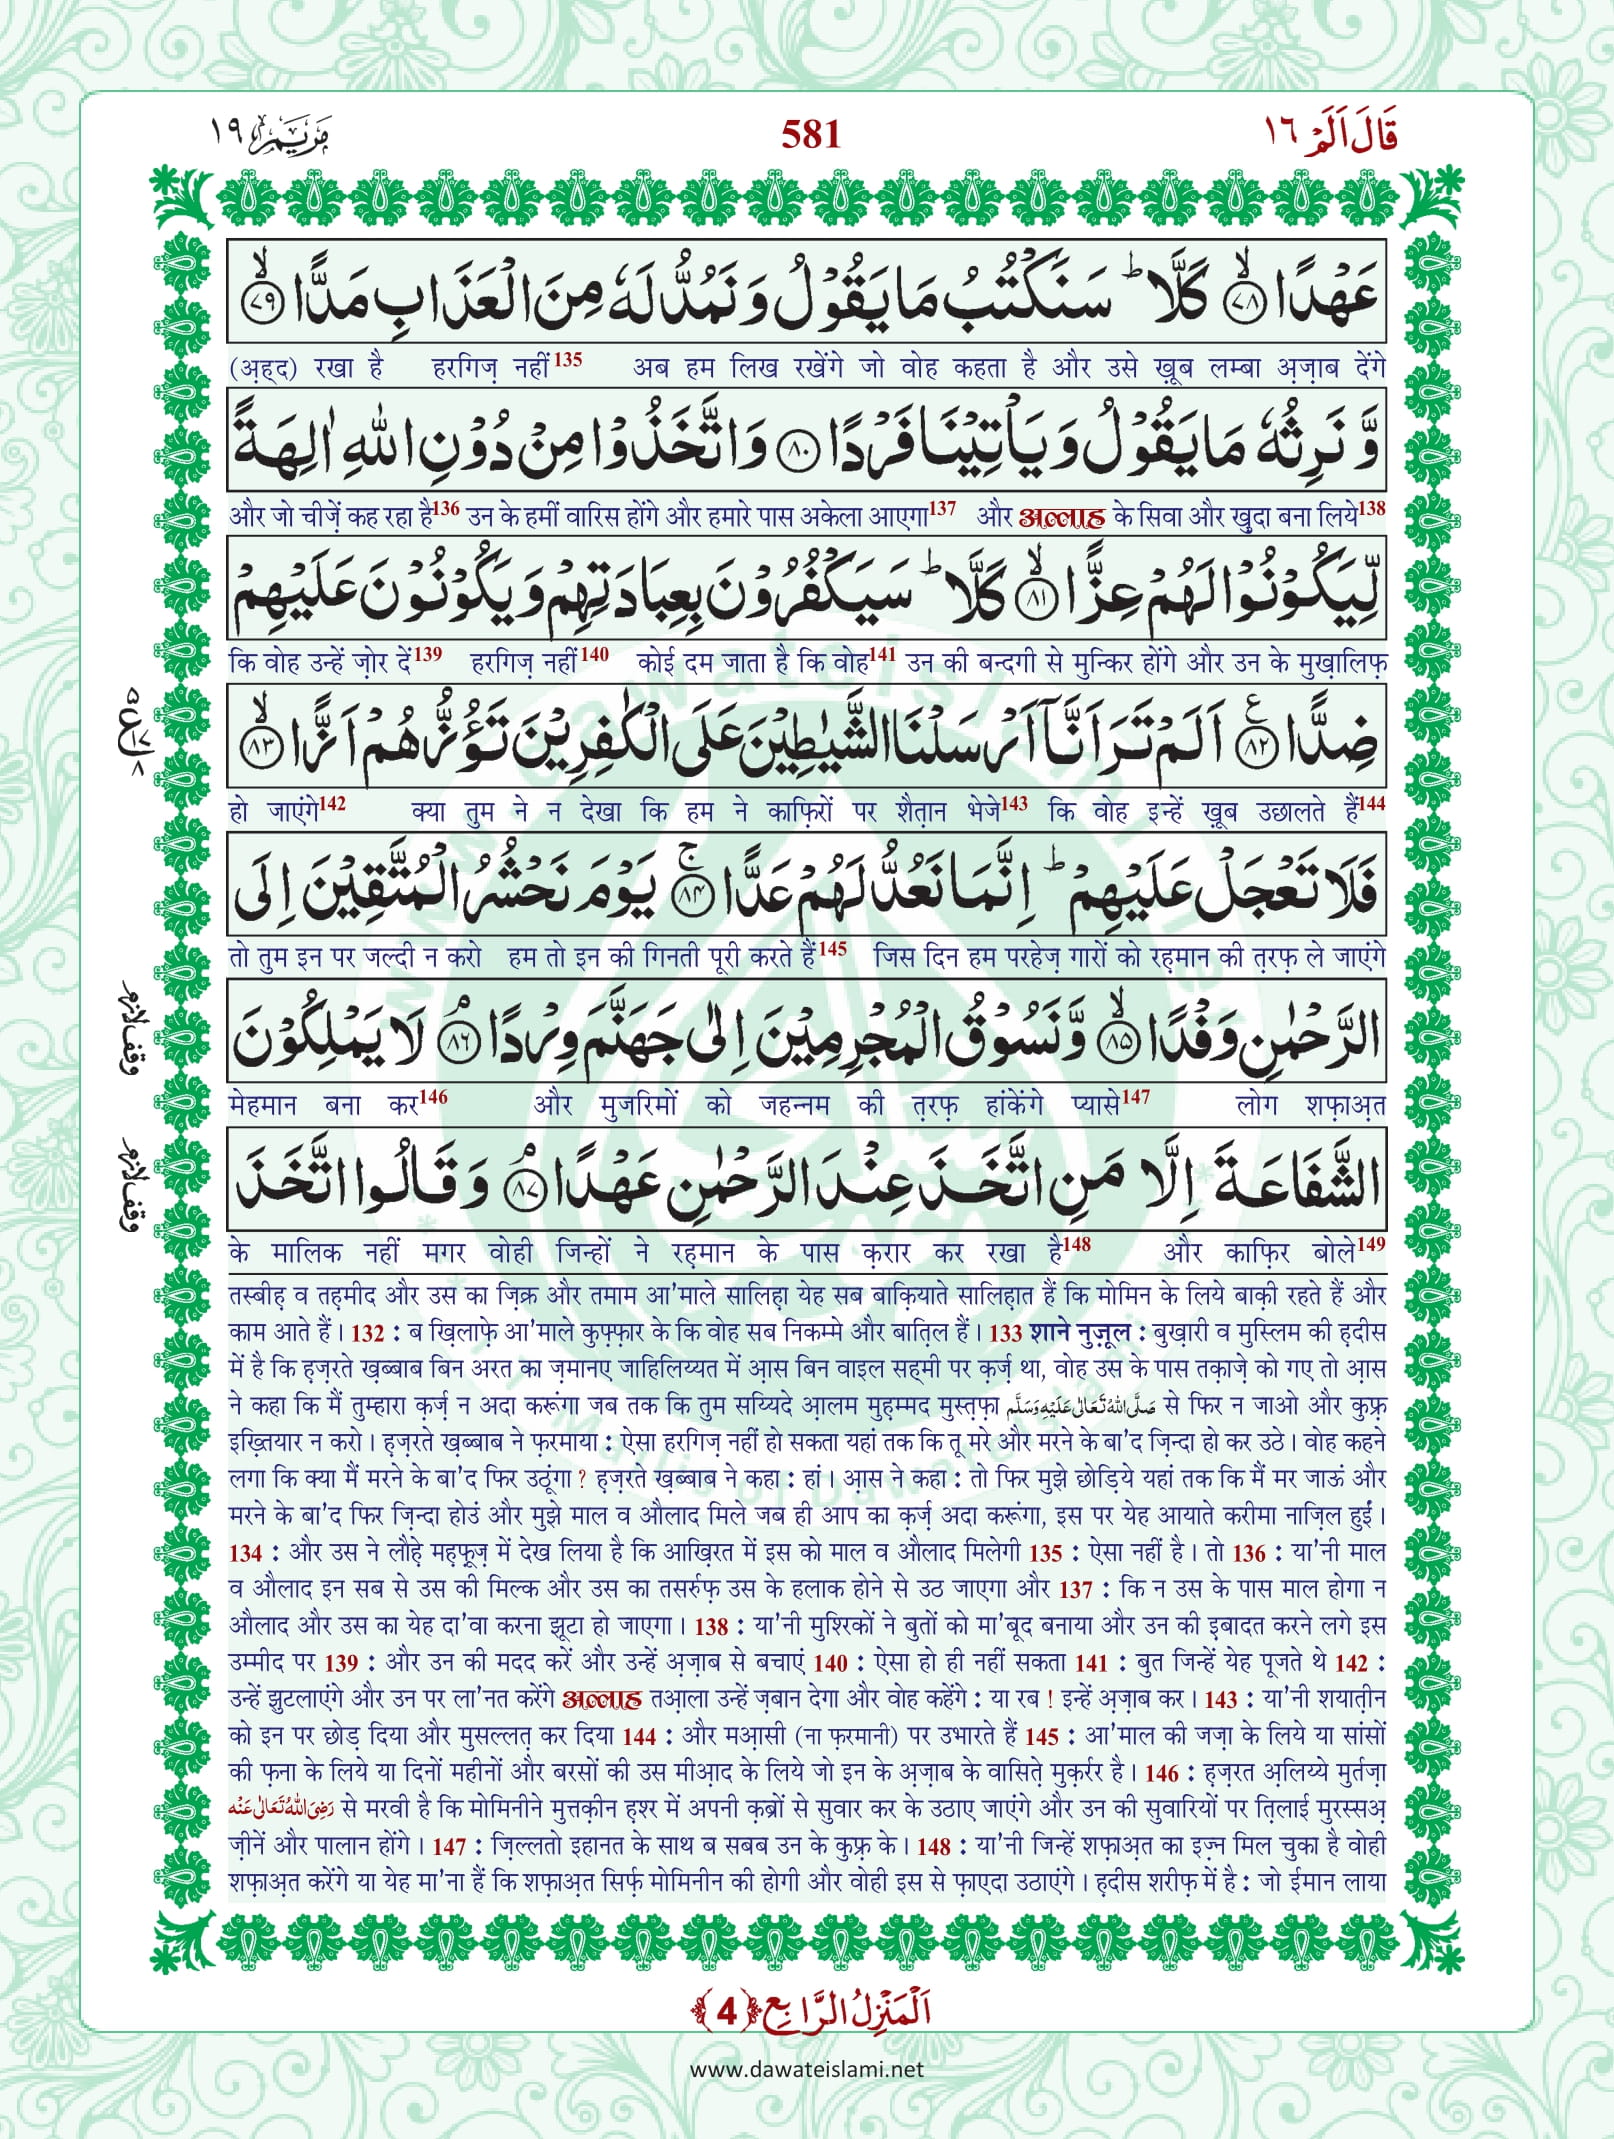 قَالَ اَلَمْ ١٦
581
مَرْيَم ١٩
عَهْدًا ۙ﴿۷۸﴾ كَلَّا ؕ سَنَكْتُبُ مَا یَقُوْلُ وَ نَمُدُّ لَهٗ مِنَ الْعَذَابِ مَدًّا ۙ﴿۷۹﴾
(अ़ह्द) रखा है हरगिज़ नहीं135 अब हम लिख रखेंगे जो वोह कहता है और उसे ख़ूब लम्बा अ़ज़ाब देंगे
وَّ نَرِثُهٗ مَا یَقُوْلُ وَ یَاْتِیْنَا فَرْدًا ﴿۸۰﴾ وَ اتَّخَذُوْا مِنْ دُوْنِ اللّٰهِ اٰلِهَةً
और जो चीज़ें कह रहा है136 उन के हमीं वारिस होंगे और हमारे पास अकेला आएगा137 और अल्लाह के सिवा और खुदा बना लिये138
لِّیَكُوْنُوْا لَهُمْ عِزًّا ۙ﴿۸۱﴾ كَلَّا ؕ سَیَكْفُرُوْنَ بِعِبَادَتِهِمْ وَ یَكُوْنُوْنَ عَلَیْهِمْ
कि वोह उन्हें ज़ोर दें139 हरगिज़ नहीं140 कोई दम जाता है कि वोह141 उन की बन्दगी से मुन्किर होंगे और उन के मुख़ालिफ़
ضِدًّا ﴿۸۲﴾ۧ اَلَمْ تَرَ اَنَّاۤ اَرْسَلْنَا الشَّیٰطِیْنَ عَلَى الْكٰفِرِیْنَ تَؤُزُّهُمْ اَزًّا ۙ﴿۸۳﴾
۵ ع ۱۷ ۸
हो जाएंगे142 क्या तुम ने न देखा कि हम ने काफ़िरों पर शैत़ान भेजे143 कि वोह इन्हें ख़ूब उछालते हैं144
فَلَا تَعْجَلْ عَلَیْهِمْ ؕ اِنَّمَا نَعُدُّ لَهُمْ عَدًّا ۚ﴿۸۴﴾ یَوْمَ نَحْشُرُ الْمُتَّقِیْنَ اِلَى
तो तुम इन पर जल्दी न करो हम तो इन की गिनती पूरी करते हैं145 जिस दिन हम परहेज़ गारों को रह़मान की त़रफ़ ले जाएंगे
الرَّحْمٰنِ وَفْدًا ۙ﴿۸۵﴾ وَّ نَسُوْقُ الْمُجْرِمِیْنَ اِلٰى جَهَنَّمَ وِرْدًا ۘ﴿۸۶﴾ لَا یَمْلِكُوْنَ
وقف لازم
मेहमान बना कर146 और मुजरिमों को जहन्नम की त़रफ़ हांकेंगे प्यासे147 लोग शफ़ाअ़त
الشَّفَاعَةَ اِلَّا مَنِ اتَّخَذَ عِنْدَ الرَّحْمٰنِ عَهْدًا ۘ﴿۸۷﴾ وَ قَالُوا اتَّخَذَ
وقف لازم
के मालिक नहीं मगर वोही जिन्हों ने रह़मान के पास क़रार कर रखा है148 और काफ़िर बोले149
तस्बीह़ व तह़मीद और उस का ज़िक्र और तमाम आ'माले सालिह़ा येह सब बाक़ियाते सालिह़ात हैं कि मोमिन के लिये बाक़ी रहते हैं और
काम आते हैं। 132 : ब ख़िलाफ़े आ'माले कुफ़्फ़ार के कि वोह सब निकम्मे और बात़िल हैं। 133 शाने नुज़ूल : बुख़ारी व मुस्लिम की ह़दीस
में है कि ह़ज़रते ख़ब्बाब बिन अरत का ज़मानए जाहिलिय्यत में आ़स बिन वाइल सहमी पर क़र्ज़ था, वोह उस के पास तक़ाज़े को गए तो आ़स
ने कहा कि मैं तुम्हारा क़र्ज़ न अदा करूंगा जब तक कि तुम सय्यिदे आ़लम मुह़म्मद मुस्त़फ़ा صَلَّى اللهُ تَعَالٰى عَلَيْهِ وَسَلَّم से फिर न जाओ और कुफ़्र
इख़्तियार न करो। ह़ज़रते ख़ब्बाब ने फ़रमाया : ऐसा हरगिज़ नहीं हो सकता यहां तक कि तू मरे और मरने के बा'द ज़िन्दा हो कर उठे। वोह कहने
लगा कि क्या मैं मरने के बा'द फिर उठूंगा ? ह़ज़रते ख़ब्बाब ने कहा : हां। आ़स ने कहा : तो फिर मुझे छोड़िये यहां तक कि मैं मर जाऊं और
मरने के बा'द फिर ज़िन्दा होउं और मुझे माल व औलाद मिले जब ही आप का क़र्ज़ अदा करूंगा, इस पर येह आयाते करीमा नाज़िल हुईं।
134 : और उस ने लौह़े मह़फ़ूज़ में देख लिया है कि आख़िरत में इस को माल व औलाद मिलेगी 135 : ऐसा नहीं है। तो 136 : या'नी माल
व औलाद इन सब से उस की मिल्क और उस का तसर्रुफ़ उस के हलाक होने से उठ जाएगा और 137 : कि न उस के पास माल होगा न
औलाद और उस का येह दा'वा करना झूटा हो जाएगा। 138 : या'नी मुश्रिकों ने बुतों को मा'बूद बनाया और उन की इ़बादत करने लगे इस
उम्मीद पर 139 : और उन की मदद करें और उन्हें अ़ज़ाब से बचाएं 140 : ऐसा हो ही नहीं सकता 141 : बुत जिन्हें येह पूजते थे 142 :
उन्हें झुटलाएंगे और उन पर ला'नत करेंगे अल्लाह तआ़ला उन्हें ज़बान देगा और वोह कहेंगे : या रब ! इन्हें अ़ज़ाब कर। 143 : या'नी शयात़ीन
को इन पर छोड़ दिया और मुसल्लत़ कर दिया 144 : और मआ़सी (ना फ़रमानी) पर उभारते हैं 145 : आ'माल की जज़ा के लिये या सांसों
की फ़ना के लिये या दिनों महीनों और बरसों की उस मीआ़द के लिये जो इन के अ़ज़ाब के वासित़े मुक़र्रर है। 146 : ह़ज़रत अ़लिय्ये मुर्तज़ा
رَضِىَ اللهُ تَعَالٰى عَنْه से मरवी है कि मोमिनीने मुत्तक़ीन ह़श्र में अपनी क़ब्रों से सुवार कर के उठाए जाएंगे और उन की सुवारियों पर त़िलाई मुरस्सअ़
ज़ीनें और पालान होंगे। 147 : ज़िल्लतो इहानत के साथ ब सबब उन के कुफ़्र के। 148 : या'नी जिन्हें शफ़ाअ़त का इज़्न मिल चुका है वोही
शफ़ाअ़त करेंगे या येह मा'ना हैं कि शफ़ाअ़त सिर्फ़ मोमिनीन की होगी और वोही इस से फ़ाएदा उठाएंगे। ह़दीस शरीफ़ में है : जो ईमान लाया
اَلْمَنْزِلُ الرَّابِع ﴿4﴾
www.dawateislami.net